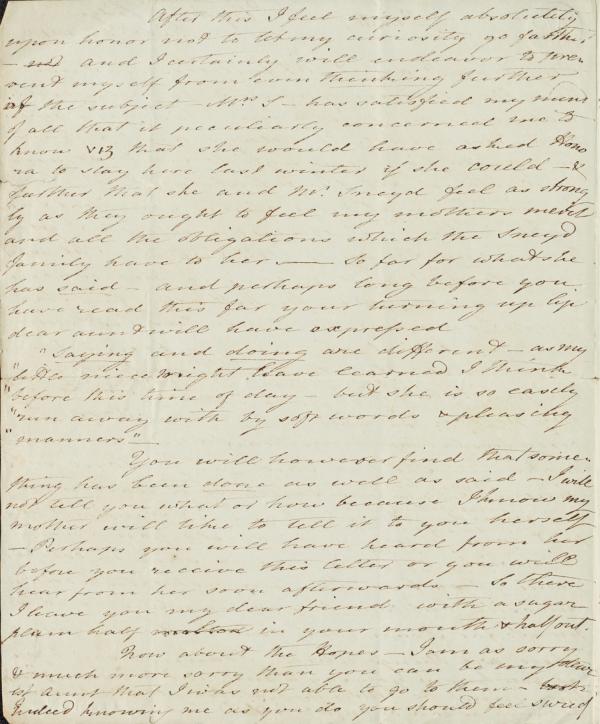 After this I feel myself absolutely
upon honor not to let my curiosity go farther
- and I certainly will endeavor to pre-
vent myself from even thinking further
of the subject - Mrs S - has satisfied my mind
of all that it peculiarly concerned me to
know viz that she would have asked Hono
ra to stay here last winter if she could - &
further that she and Mr. Sneyd feel as strong
ly as they ought to feel my mothers merit
and all the obligations which the Sneyd
family have to her — So far for what she
has said - and perhaps long before you
have read this far your turning up lip
dear aunt will have expressed
"Saying and doing are different - as my
"little niece might have learned I think
"before this time of day - but she is so easily
"run away with by soft words & pleasing
"manners" —
You will however find that some-
thing has been done as well as said - I will
not tell you what or how because I know my
mother will like to tell it to you herself
- Perhaps you will have heard from her
before you receive this letter or you will
hear from her soon afterwards - So there
I leave you my dear friend with a sugar
plum half in your mouth & half out.
Now about the Hopes - I am as sorry
& much more sorry than you can be my
aunt that I was not able to go to them -
Indeed knowing me as you do you should feel